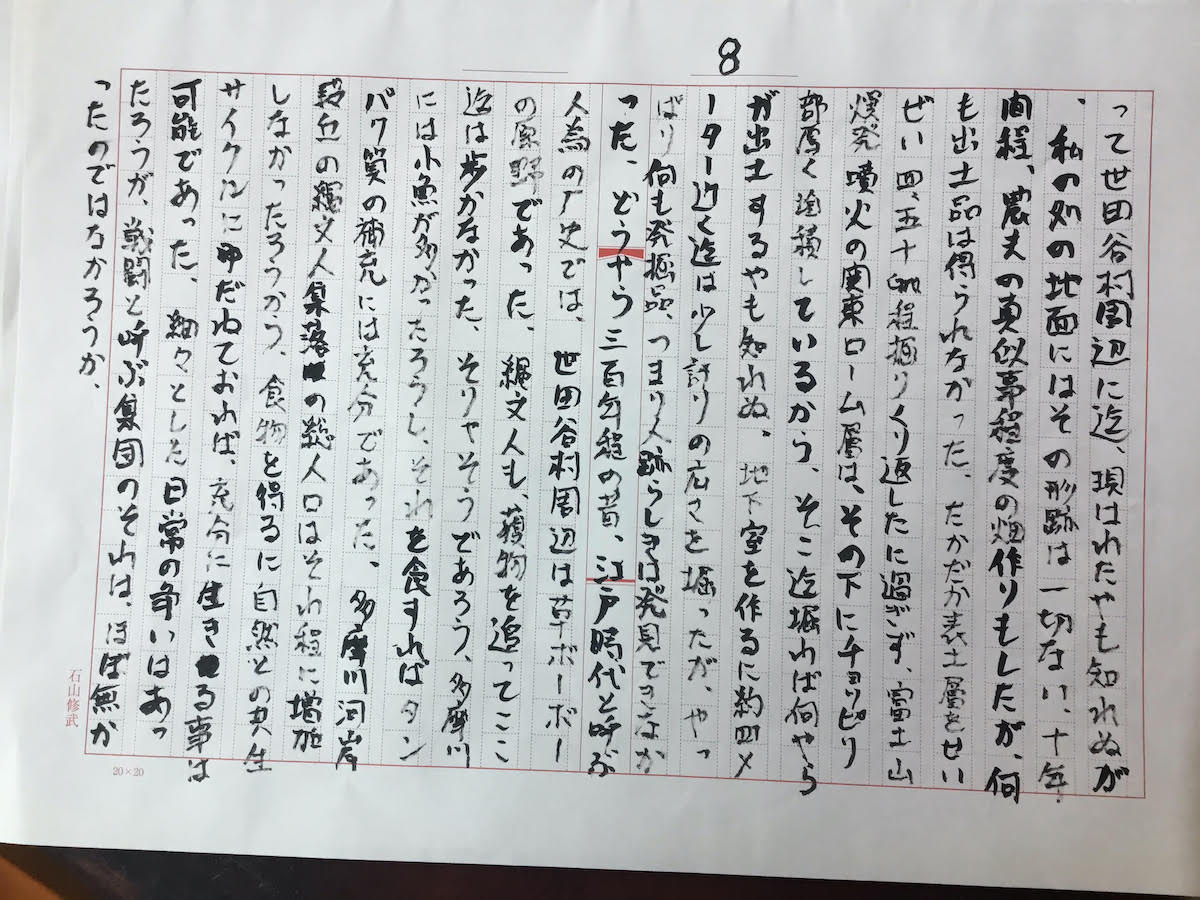 8
って世田谷村周辺に迄、現はれたやも知れぬが
、私の処の地面にはその形跡は一切ない、十年
間程、農夫の真似事程度の畑作りもしたが、何
も出土品は得られなかった、たかだか表土層をせい
ぜい四、五十糎程掘りくり返したに過ぎず、富士山
爆発噴火の関東ローム層は、その下にチョッピリ
部厚く堆積しているから、そこ迄堀れば何やら
が出土するやも知れぬ、地下室を作るに約四メ
ーター近く迄は少し許りの広さを堀ったが、やっ
ぱり何も発掘品、つまり人跡らしきは発見できなか
った、どうやら三百年程の昔、江戸時代と呼ぶ
人為の厂史では、世田谷村周辺は草ボーボー
の原野であった、縄文人も、獲物を追ってここ
迄は歩かなかった、そりゃそうであろう、多摩川
には小魚が多かったろうし、それを食すればタン
パク質の補充には充分であった、多摩川河岸
段丘の縄文人集落の総人口はそれ程に増加
しなかったろうから、食物を得るに自然との共生
サイクルに ゆだねておれば、充分に生きる事は
可能であった、細々とした日常の争いはあっ
たろうが、戦闘と呼ぶ集団のそれは、ほぼ無か
ったのではなかろうか、
石山修武
20×20